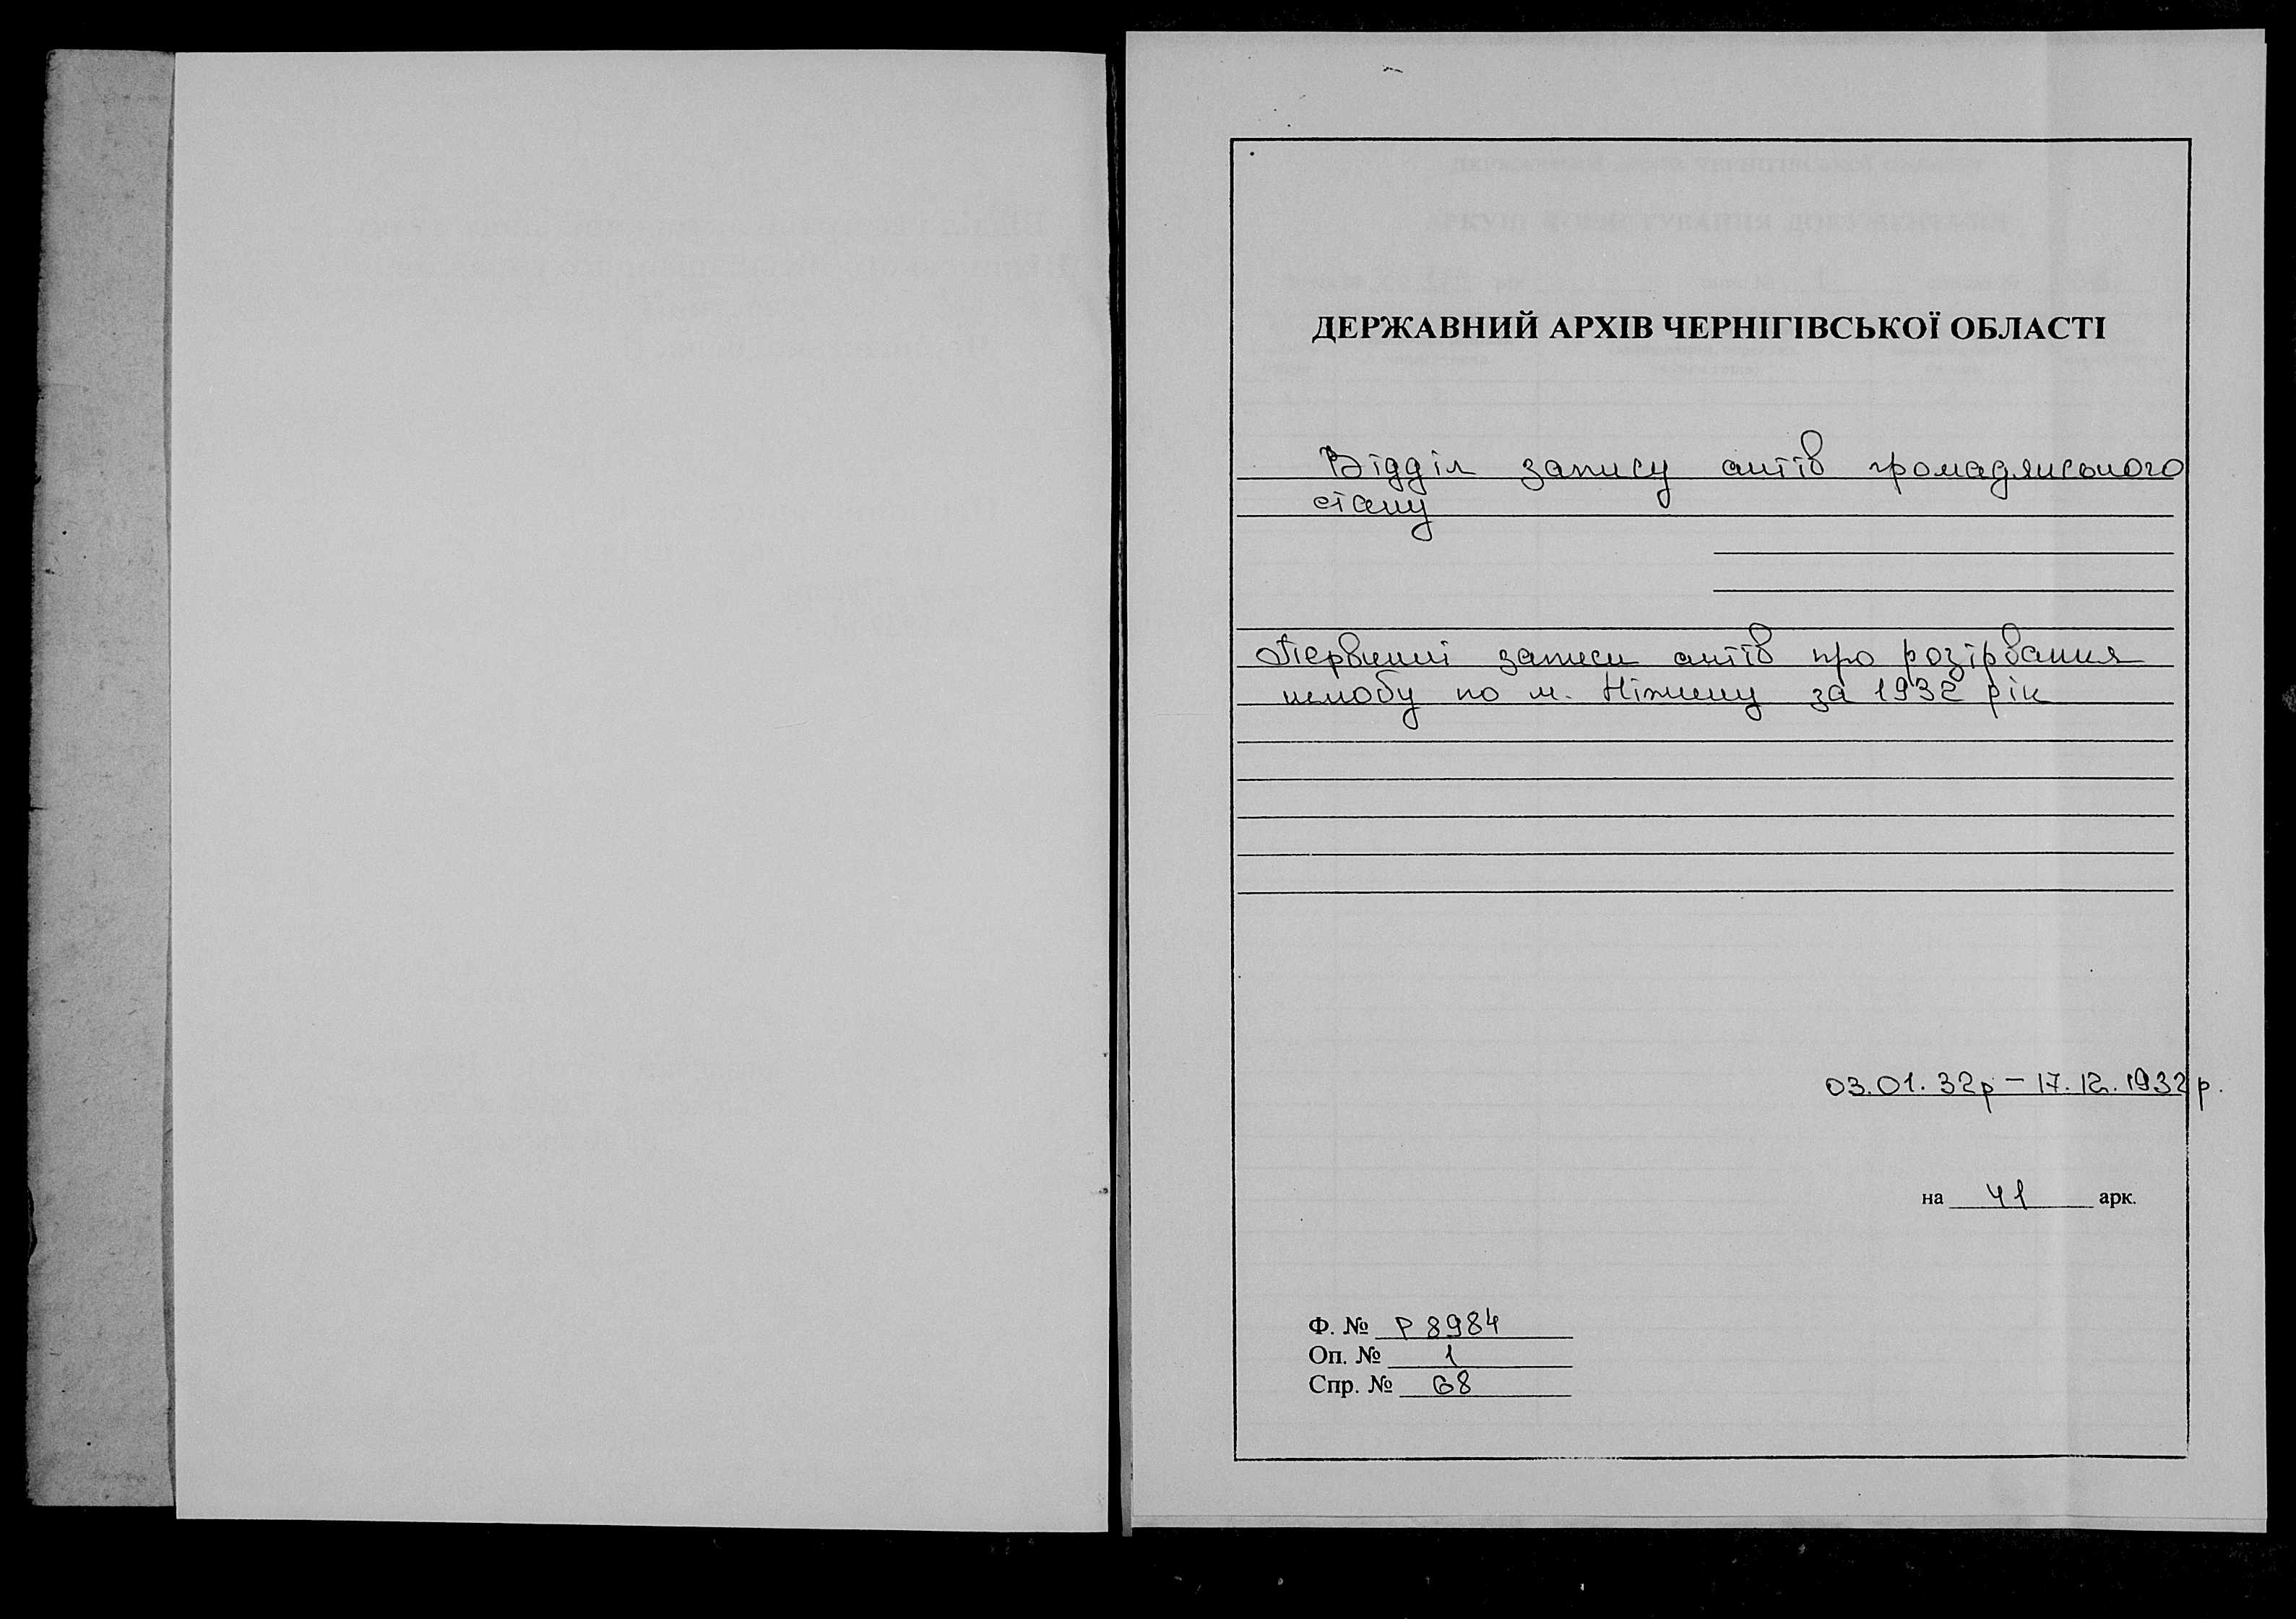 ДЕРЖАВНИЙ АРХІВ ЧЕРНІГІВСЬКОЇ ОБЛАСТІ
Відділ запису актів громадянського
стану
Первинні записи актів про розірвання
шлюбу по м. Ніжину за 1932 рік
03.01.32р – 17.12.1932р.
на 41 арк.
Ф. № Р 8984
Оп. № 1
Спр. № 68